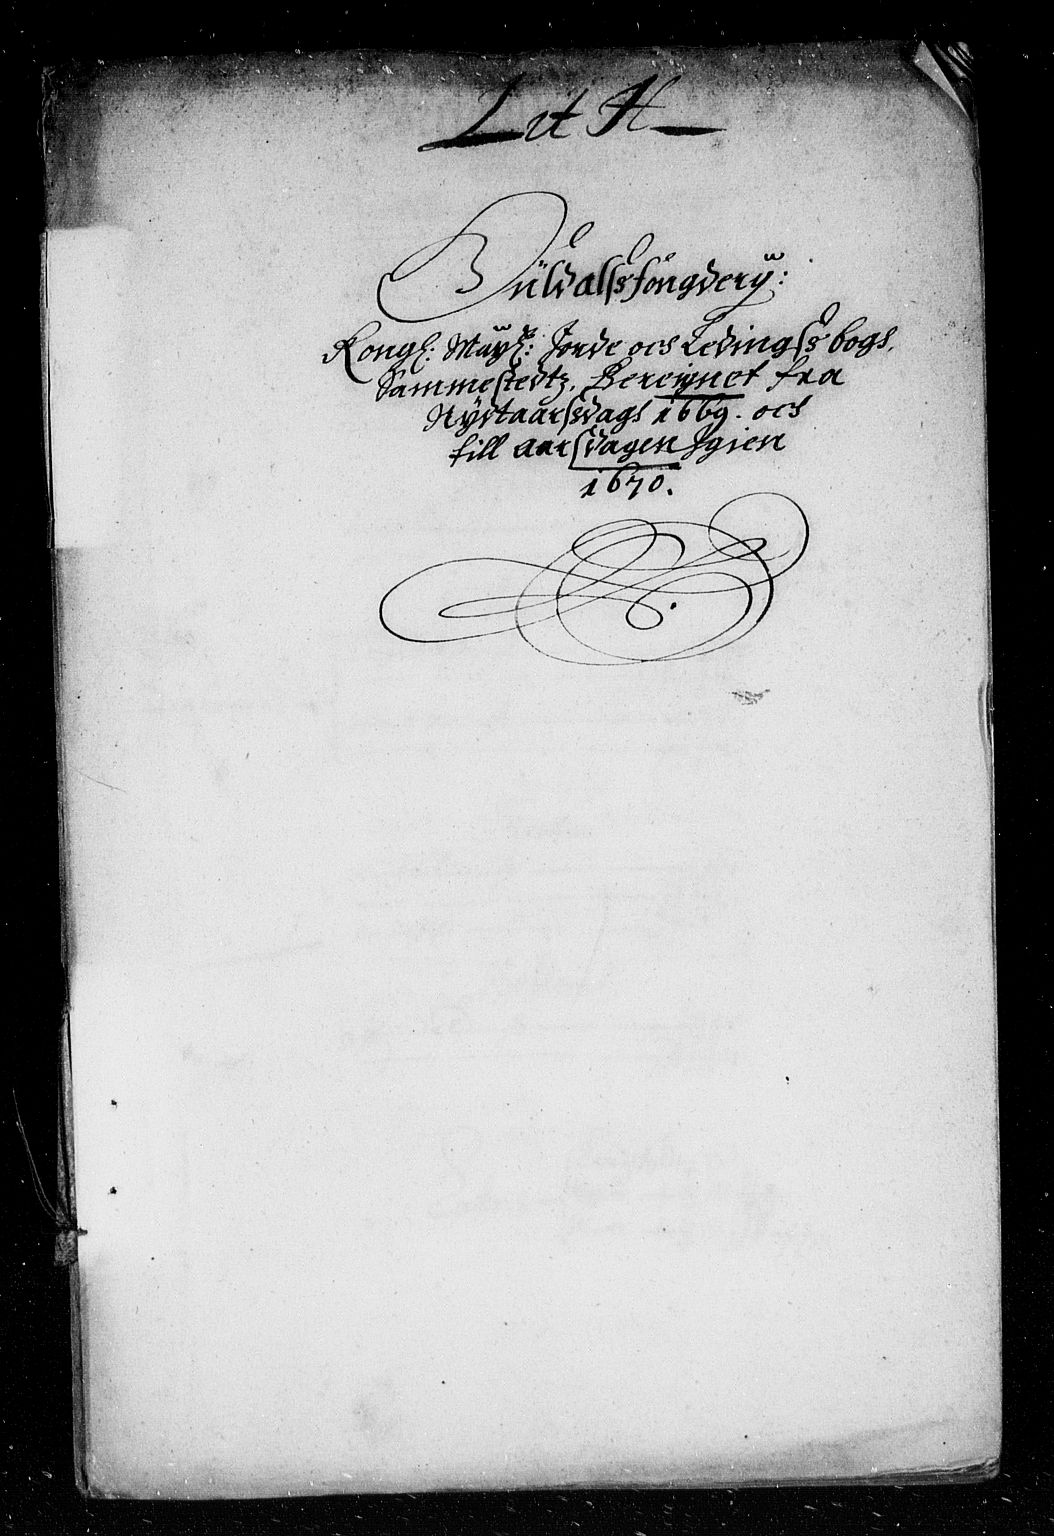 Lit H
Guldals fougdery:
Kongl: Maytz: Jorde och Ledings bogs,
Sammestedtz, Bereignet fra
Nydtaarsdags 1669. och
till aarsdagen Igien
1670.